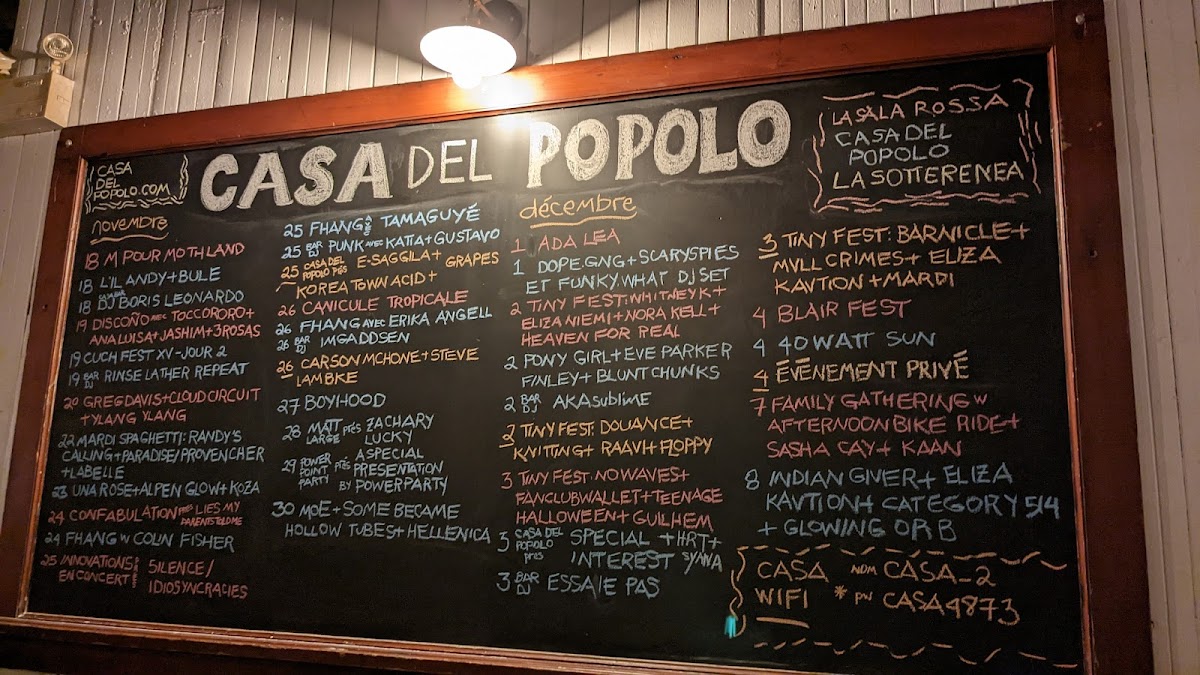 CASA
DEL
POPOLO.COM
CASA DEL POPOLO
LA SALA ROSSA
CASA DEL
POPOLO
LA SOTTERENEA
novembre
18 M POUR MOTHLAND
18 L'IL ANDY + BULE
18 DJ BORIS LEONARDO
19 DISCOÑO AVEC TOCCORORO +
ANA LUISA + JASHIM + 3ROSAS
19 CUCHFEST XV - JOUR 2
19 BAR DJ RINSE LATHER REPEAT
20 GREG DAVIS + CLOUD CIRCUIT
+ YLANG YLANG
22 MARDI SPAGHETTI: RANDY'S
CALLING + PARADISE/PROVENCHER
+ LABELLE
23 UNA ROSE + ALPEN GLOW + KOZA
24 CONFABULATION PRÉS LIES MY
PARENTS TOLD ME
24 FHANG W COLIN FISHER
25 INNOVATIONS
EN CONCERT
SILENCE /
IDIOSYNCRACIES
25 FHANG AVEC TAMAGUYÉ
25 BAR DJ PUNK AVEC KATIA + GUSTAVO
25 CASA DEL POPOLO PRÉS E-SAGGILA + GRAPES
KOREA TOWN ACID +
26 CANICULE TROPICALE
26 FHANG AVEC ERIKA ANGELL
26 BAR DJ IMGADDSEN
26 CARSON MCHONE + STEVE
LAMBKE
27 BOYHOOD
28 MATT LARGE PRÉS ZACHARY
LUCKY
29 POWER POINT PARTY PRÉS A SPECIAL
PRESENTATION
BY POWERPARTY
30 MOE + SOME BECAME
HOLLOW TUBES + HELLENICA
décembre
1 ADA LEA
1 DOPE.GNG + SCARYSPIES
ET FUNKY.WHAT DJ SET
2 TINY FEST: WHITNEY K +
ELIZA NIEMI + NORA KELL +
HEAVEN FOR REAL
2 PONY GIRL + EVE PARKER
FINLEY + BLUNT CHUNKS
2 BAR DJ AKAsublime
2 TINY FEST: DOUANCE +
KNITTING + RAAVI + FLOPPY
3 TINY FEST: NO WAVES +
FANCLUBWALLET + TEENAGE
HALLOWEEN + GUILHEM
3 CASA DEL POPOLO PRÉS SPECIAL + HRT +
INTEREST SYANA
3 BAR DJ ESSAIE PAS
3 TINY FEST: BARNICLE +
MVLL CRIMES + ELIZA
KAVTION + MARDI
4 BLAIR FEST
4 40 WATT SUN
4 ÉVÉNEMENT PRIVÉ
7 FAMILY GATHERING W
AFTERNOON BIKE RIDE +
SASHA CAY + KAAN
8 INDIAN GIVER + ELIZA
KAVTION + CATEGORY 5/4
+ GLOWING ORB
CASA NOM CASA_2
WIFI * PW CASA4873